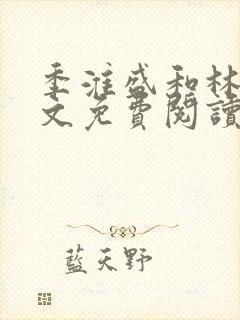 季淮盛和林
文免費閱讀
藍天野